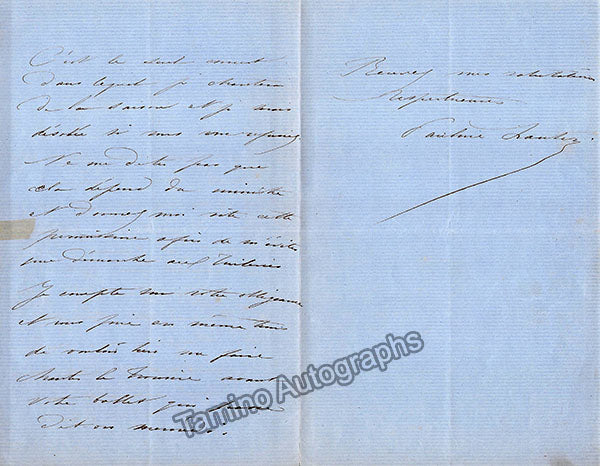 C'est le seul concert
dans lequel je chanterai
de la saison et je serais
désolée si vous me refusiez
Ne me dites pas que
cela dépend du ministre
et donnez moi vite cette
permission afin de
que dimanche aux Tuileries
Je compte sur votre obligeance
et vous prie en même tems
de vouloir bien me faire
chanter le Trouvère avant
votre ballet qui
dit on
Recevez mes salutations
Respectueuses
Pauline Lauters.
Tamino Autographs